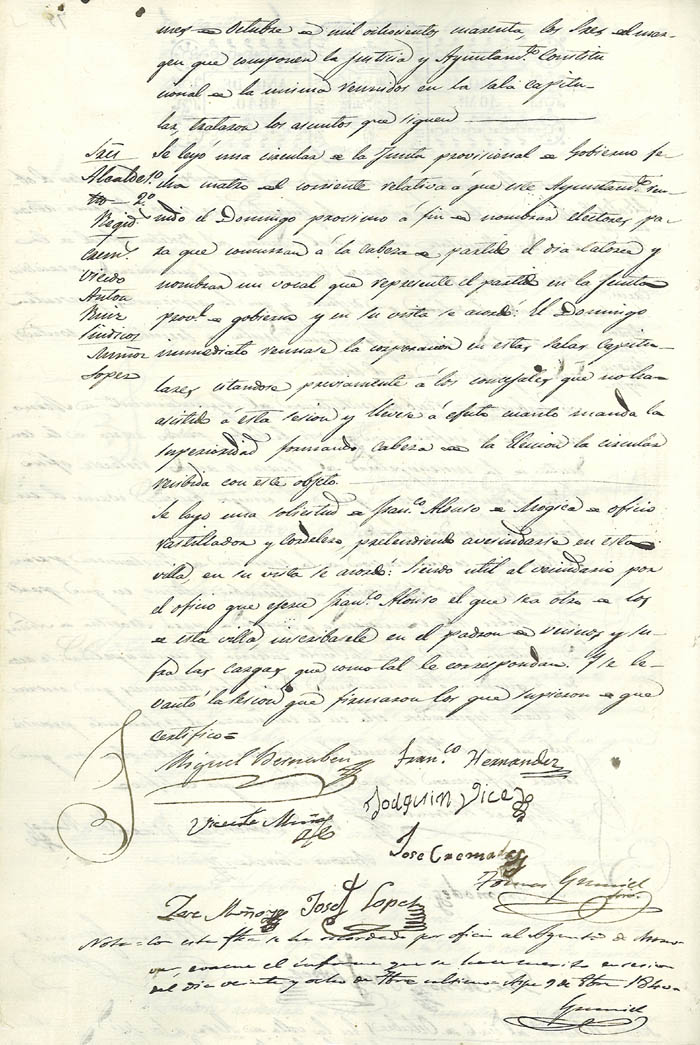 mes de Octubre de mil ochocientos cuarenta, los Sres. del mar-
gen que componen la Justicia y Ayuntam.to Constitu
cional de la misma reunidos en la sala capitu-
lar, trataron los asuntos que siguen
Sres
Alcalde 1.º
2.º
Regid.
Crem.s
Vicedo
Anton
Ruiz
Sindicos
Muñoz
Lopez
Se leyó una circular de la Junta provisional de Gobierno fe-
cha cuatro del corriente relativa á que este Ayuntam.to reu-
nido el Domingo proximo á fin de nombrar electores pa-
ra que concurran á la cabeza de partido el dia catorce y
nombrar un vocal que represente el partido en la Junta
prov.l de gobierno y en su vista se acordó: El Domingo
inmediato reunase la corporacion en estas salas Capitu-
lares citandose previamente á los concejales que no han
asistido á esta sesion y lleve á efecto cuanto manda la
superioridad formando cabeza de la Eleccion la circular
recibida con este objeto.
Se leyó una solicitud de Fran.co Alonso de Mogica de oficio
rastillador y Cordelero pretendiendo avecindarse en esta
villa, en su vista se acordó: Siendo util al vecindario por
el oficio que ejerce Fran.co Alonso el que sea otro de los
de esta villa, inscribasele en el padron de vecinos y su-
fra las cargas que como tal le correspondan. Y se le-
vantó la sesion que firmaron los que supieron de que
certifico=
Miguel Bernabeu
Fran.co Hernandez
Joaquin Vicedo
Vicente Muñoz
Jose Cremades
Tomas Gumiel
Jose Muñoz
Josef Lopez
Nota = Con esta fha se ha recordado por oficio al Ayunt.º de
evacue el informe que se hace merito en sesion
del dia veinte y ocho de 7bre ultimo Aspe 9 de 8bre 1840
Gumiel